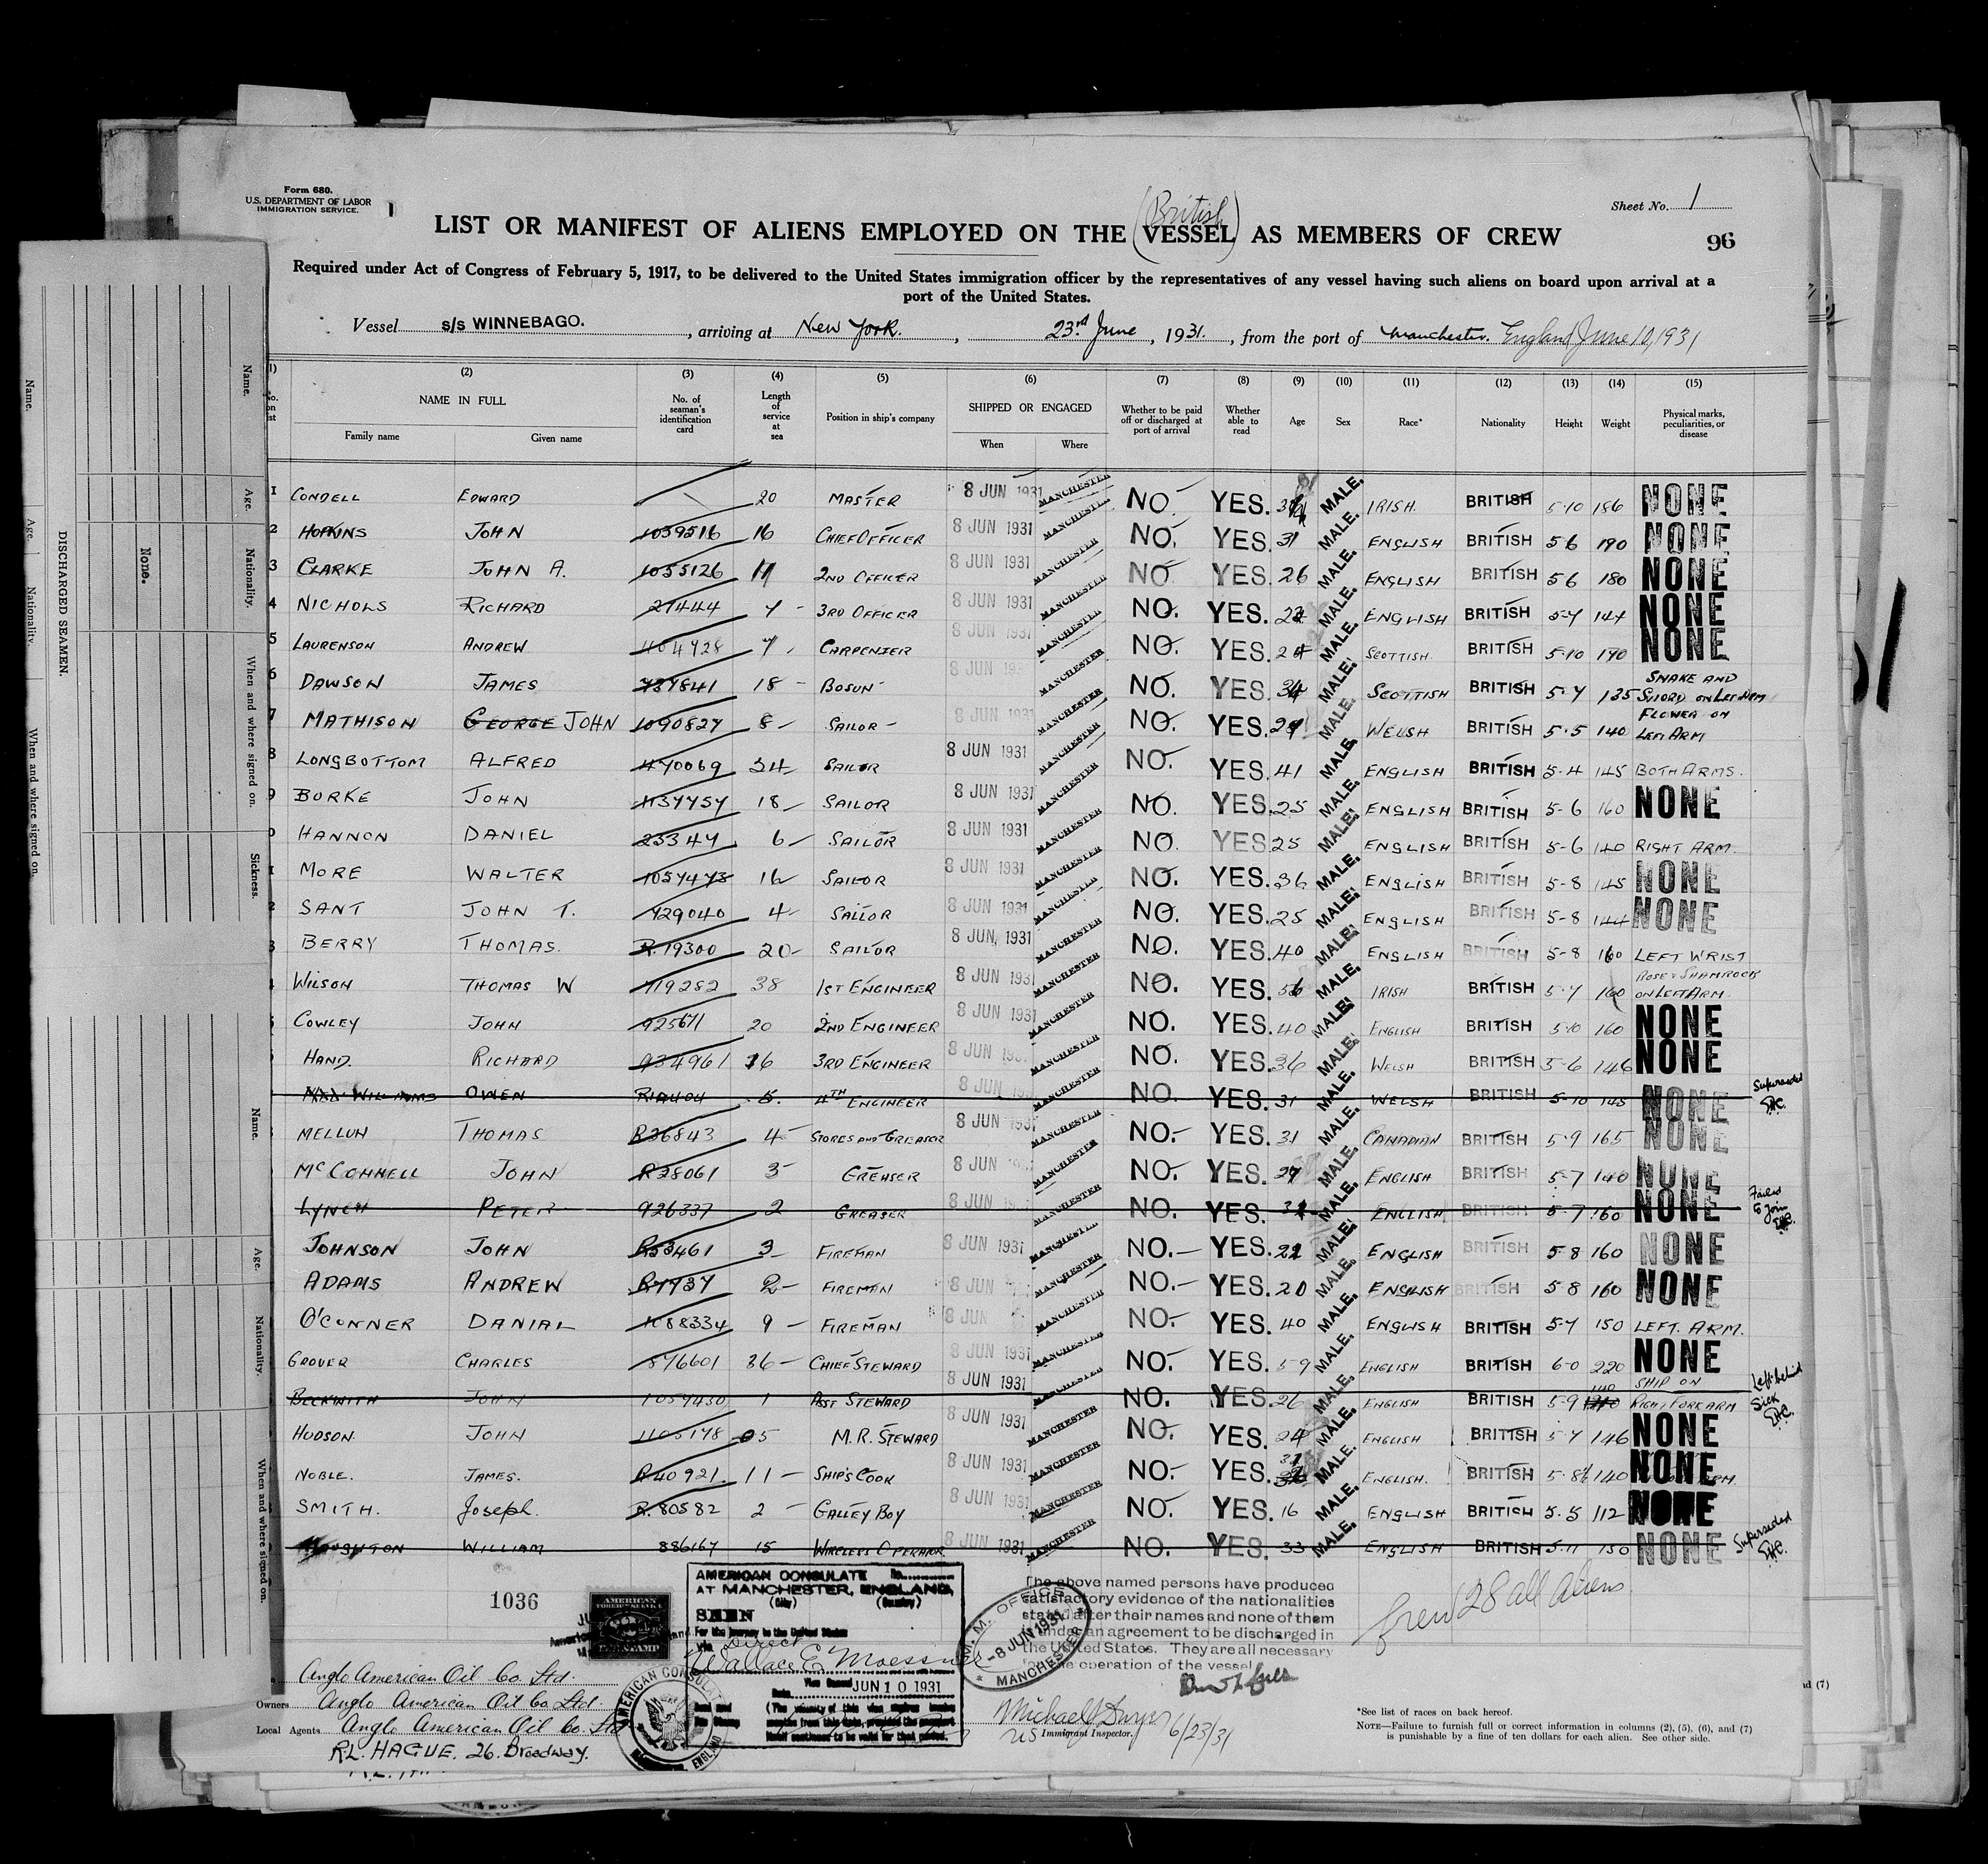 Form 680.
U.S. DEPARTMENT OF LABOR
IMMIGRATION SERVICE.
Sheet No. 1
(British)
LIST OR MANIFEST OF ALIENS EMPLOYED ON THE VESSEL AS MEMBERS OF CREW
96
Required under Act of Congress of February 5, 1917, to be delivered to the United States immigration officer by the representatives of any vessel having such aliens on board upon arrival at a
port of the United States.
Vessel s/s WINNEBAGO. , arriving at New York. , 23rd June , 1931. , from the port of Manchester. England June 10, 1931
(2) (3) (4) (5) (6) (7) (8) (9) (10) (11) (12) (13) (14) (15)
NAME IN FULL No. of seaman's identification card Length of service at sea Position in ship's company SHIPPED OR ENGAGED Whether to be paid off or discharged at port of arrival Whether able to read Age Sex Race* Nationality Height Weight Physical marks, peculiarities, or disease
Family name Given name When Where
1 CONDELL EDWARD 20 MASTER 8 JUN 1931 MANCHESTER NO. YES. MALE. IRISH. BRITISH 5-10 186 NONE
2 HOPKINS JOHN 1039516 16 CHIEF OFFICER 8 JUN 1931 MANCHESTER NO. YES. 31 MALE. ENGLISH BRITISH 5 6 190 NONE
3 CLARKE JOHN A. 1055126 11 2ND OFFICER 8 JUN 1931 MANCHESTER NO. YES. 26 MALE. ENGLISH BRITISH 5 6 180 NONE
4 NICHOLS RICHARD 27444 7 3RD OFFICER 8 JUN 1931 MANCHESTER NO. YES. MALE. ENGLISH BRITISH 5-7 144 NONE
5 LAURENSON ANDREW 7 CARPENTER 8 JUN 1931 MANCHESTER NO. YES. MALE. SCOTTISH. BRITISH 5-10 170 NONE
6 DAWSON JAMES 737841 18 BOSUN 8 JUN 193 MANCHESTER NO. YES. 34 MALE. SCOTTISH BRITISH 5-7 135 SNAKE AND SWORD ON LEFT ARM
7 MATHISON GEORGE JOHN 1090827 8 SAILOR 8 JUN 1931 MANCHESTER NO. YES. MALE. WELSH BRITISH 5.5 140 FLOWER ON LEFT ARM
8 LONGBOTTOM ALFRED 470069 24 SAILOR 8 JUN 1931 MANCHESTER NO. YES. 41 MALE. ENGLISH BRITISH 5-4 145 BOTH ARMS.
9 BORKE JOHN 1137757 18 SAILOR 8 JUN 1931 MANCHESTER NO. YES. 25 MALE. ENGLISH BRITISH 5-6 160 NONE
HANNON DANIEL 23347 6 SAILOR 8 JUN 1931 MANCHESTER NO. YES 25 MALE. ENGLISH BRITISH 5-6 140 RIGHT ARM.
MORE WALTER 1057473 16 SAILOR 8 JUN 1931 MANCHESTER NO. YES. 36 MALE. ENGLISH BRITISH 5-8 145 NONE
SANT JOHN T. 929040 4 SAILOR 8 JUN 1931 MANCHESTER NO. YES. 25 MALE. ENGLISH BRITISH 5-8 144 NONE
BERRY THOMAS. R.19300 20 SAILOR 8 JUN, 1931 MANCHESTER NO. YES. 40 MALE. ENGLISH BRITISH 5-8 160 LEFT WRIST
WILSON THOMAS W 719282 38 1ST ENGINEER 8 JUN 1931 MANCHESTER NO. YES. 56 MALE. IRISH BRITISH 5-7 160 ROSE & SHAMROCK ON LEFT ARM.
COWLEY JOHN 925671 20 2ND ENGINEER 8 JUN 1931 MANCHESTER NO. YES. 40 MALE. ENGLISH BRITISH 5-10 160 NONE
HAND. RICHARD 934961 16 3RD ENGINEER 8 JUN MANCHESTER NO. YES. 36 MALE. WELSH BRITISH 5-6 146 NONE
WILLIAMS OWEN 5. 4TH ENGINEER 8 JUN MANCHESTER NO. YES. 31 MALE. WELSH BRITISH 5-10 145 NONE Superseded
MELLUN THOMAS R36843 4 STORES AND GREASER 8 JUN 1931 MANCHESTER NO. YES. 31 MALE. CANADIAN BRITISH 5-9 165 NONE
McCONNELL JOHN R28061 3 GREASER 8 JUN MANCHESTER NO. YES. 27 MALE. ENGLISH BRITISH 5-7 140 NONE
LYNCH PETER 926337 2 GREASER 8 JUN MANCHESTER NO. YES. MALE. ENGLISH BRITISH 5-7 160 NONE Failed to join
JOHNSON JOHN R53461 3 FIREMAN 8 JUN 1931 MANCHESTER NO. YES. 22 MALE. ENGLISH BRITISH 5 8 160 NONE
ADAMS ANDREW R7737 2 FIREMAN 8 JUN MANCHESTER NO. YES. 20 MALE. ENGLISH BRITISH 5-8 160 NONE
O'CONNER DANIAL 9 FIREMAN 8 JUN MANCHESTER NO. YES. 40 MALE. ENGLISH BRITISH 5-7 150 LEFT. ARM.
GROVER CHARLES 876601 36 CHIEF STEWARD 8 JUN 1931 MANCHESTER NO. YES. 59 MALE. ENGLISH BRITISH 6-0 220 NONE
BECKWITH JOHN 1059430 1 ASST STEWARD 8 JUN 1931 MANCHESTER NO. YES. 26 MALE. ENGLISH BRITISH 5-9 140 SHIP ON RIGHT FOREARM Left behind Sick
HUDSON. JOHN 1105178 5 M.R. STEWARD 8 JUN 1931 MANCHESTER NO. YES. 24 MALE. ENGLISH BRITISH 5-7 146 NONE
NOBLE. JAMES. R40921. 11 SHIP'S COOK 8 JUN 1931 MANCHESTER NO. YES. MALE. ENGLISH. BRITISH 5-8½ 140 NONE
SMITH. Joseph. R.80582 2 GALLEY BOY 8 JUN 1931 MANCHESTER NO. YES. 16 MALE. ENGLISH BRITISH 5.5 112 NONE
WILLIAM 886167 15 WIRELESS OPERATOR 8 JUN 1931 MANCHESTER NO. YES. 33 MALE. ENGLISH BRITISH 5-11 150 NONE Superseded
1036
AMERICAN FOREIGN SERVICE
AMERICAN CONSULATE
AT MANCHESTER, ENGLAND,
(City) (Country)
SEEN
For the journey to the United States
via Direct
Wallace E. Moessner
JUN 10 1931
AMERICAN CONSULATE
ENGLAND
M.M. OFFICE
8 JUN 1931
MANCHESTER
The above named persons have produced
satisfactory evidence of the nationalities
stated after their names and none of them
under an agreement to be discharged in
the United States. They are all necessary
operation of the vessel
Crew 28 all aliens
Anglo American Oil Co. Ltd.
Owners Anglo American Oil Co Ltd.
Local Agents Anglo American Oil Co. Ltd
R.L. HAGUE. 26. Broadway.
Michael J Dwyer
US Immigrant Inspector. 6/23/31
*See list of races on back hereof.
NOTE—Failure to furnish full or correct information in columns (2), (5), (6), and (7)
is punishable by a fine of ten dollars for each alien. See other side.
DISCHARGED SEAMEN.
None.
Name. Age. Nationality. When and where signed on. Sickness.
Name. Age. Nationality. When and where signed on.
Name. Age. Nationality. When and where signed on.